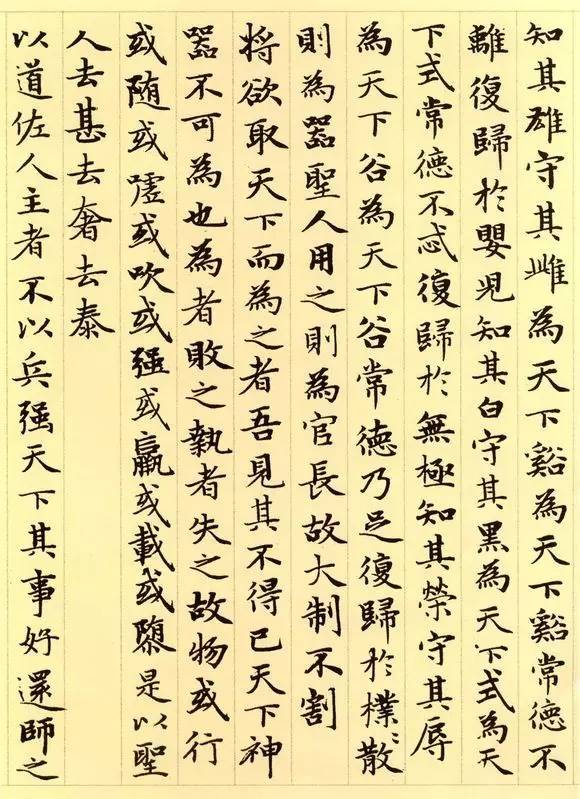 知其雄守其雌為天下谿為天下谿常德不
離復歸於嬰兒知其白守其黑為天下式為天
下式常德不忒復歸於無極知其榮守其辱
為天下谷為天下谷常德乃足復歸於樸〻散
則為器聖人用之則為官長故大制不割
将欲取天下而為之者吾見其不得已天下神
器不可為也為者敗之執者失之故物或行
或随或嘘或吹或强或羸或載或隳是以聖
人去甚去奢去泰
以道佐人主者不以兵强天下其事好還師之